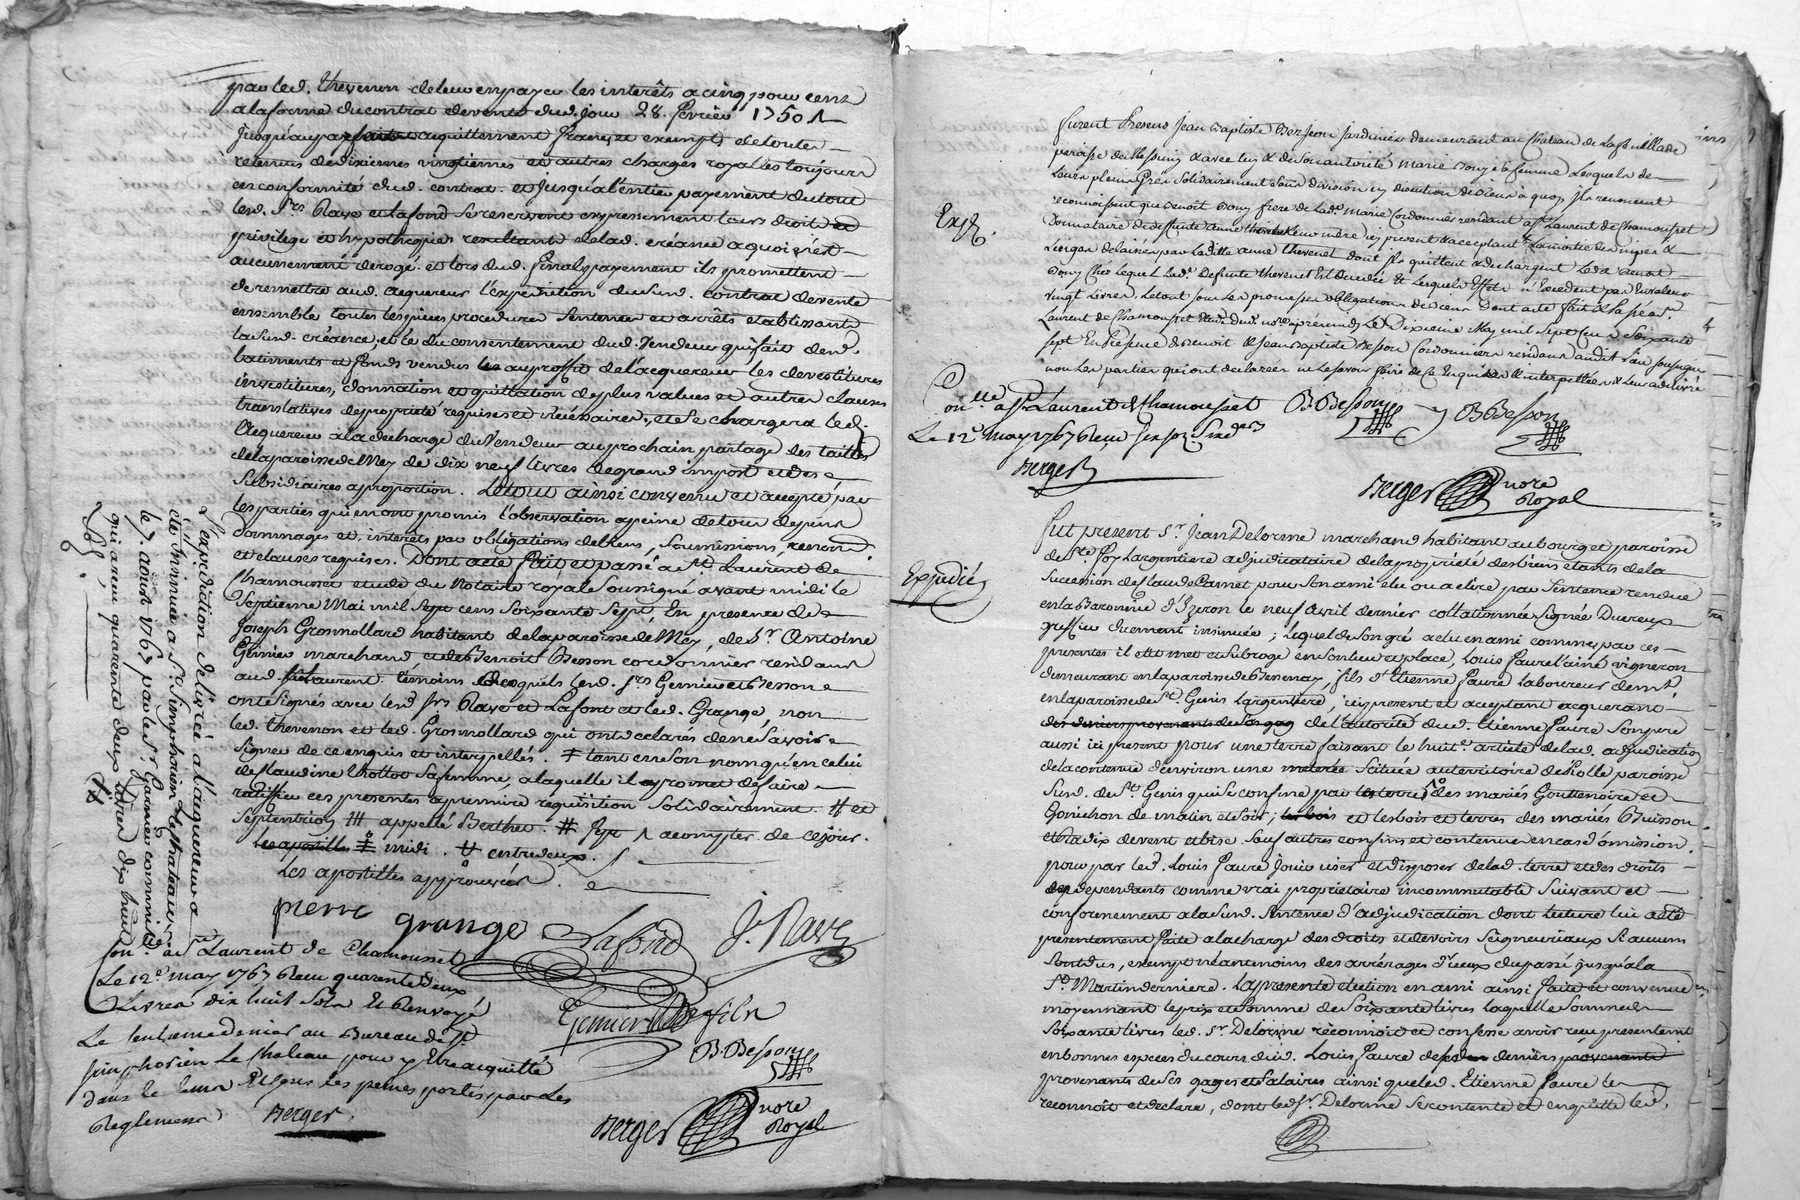 par led. thevenon de leur en payer les interêts a cinq pour cent
a la forme du contrat de vente dud. jour 28. fevrier 1750
jusqu'au acquittement franc et exempt de toutes
retenues de dixiemes vingtiemes et autres charges royalles toujours
en conformité dud. contrat. et jusqu'a l'entier payement du tout
lesd. Srs Rave et lafond se reservent expressement leurs droits
privilege et hypotheques resultants de lad. créance a quoi n'est
aucunement derogé. et lors dud. final payement ils promettent
de remettre aud. acquereur l'expedition du susd. contrat de vente
ensemble toutes les pieces procedures sentences et arrêts etablissants
la susd. créance, et ce du consentement dud. vendeur qui fait desd.
batiments et fonds vendus au proffit de l'acquereur les devestitures
investitures, donnation et quittation des plus values et autres clauses
translatives de propriété requises et nécéssaires, et se chargera led.
acquereur a la decharge du vendeur au prochain partage des tailles
de la paroisse de Mey de dix neuf livres de grand impost et des
subsidiaires a proportion. Le tout ainsi convenu et accepté par
les parties qui en ont promis l'observation a peine de tous depens
dommages et interêts par obligations de biens, soumissions, renon.
et clauses requises. Dont acte fait et passé a St. Laurent de
Chamousset etude du Notaire royal soussigné avant midi le
septieme Mai mil sept cens soixante sept, En presence de
Joseph Grosmollard habitant de la paroisse de Mey, de Sr Antoine
Genieu marchand et de Benoit Besson cordonnier residans
aud. St Laurent. témoins desquels lesd. Srs Genieu et Besson
ont signés avec lesd Srs Rave et Lafont et led. Grange, non
led. thevenon et led. Grosmollard qui ont declarés de ne savoir
signer de ce enquis et interpellés. ‡ tant en son nom qu'en celui
de Claudine Chottot sa femme, a laquelle il promet de faire
ratiffier ces presentes a premiere requisition solidairement. # et
septentrion appellé Berthet. # sept a compter de ce jour.
les apostilles midi. entredeux.
Les apostilles approuvées.
pierre grange Lafond J. Rave
Genieu fils
B. Besson
Berger nore
Royal
L'expedition delivrée a l'acquereur a
été insinuée a St. Simphorien le chateau
le 7 aoust 1767 par le Sr Garnieu commis
qui a recu quarente deux livres dix huit
sols.
Con.lé a St Laurent de Chamousset
Le 12e may 1767 Reçu quarante deux
Livres dix huit sols Et Renvoyé
Le centieme denier au Bureau de St.
simphorien Le Chateau pour y Etre acquitté
dans le tems Et sous les peines portées par Les
Reglemens Berger
furent Presens Jean Baptiste Berjeon jardinier demeurant au chateau de La feuillade
paroisse de Messimy & avec luy & de son autorité Marie Bouy sa femme Lesquels de
Leurs pleins Gréz solidairement sans division ny discution de biens a quoy ils renoncent
reconnoissent que Benoit Bouy frere de Lad.e Marie Cordonnier residant a St Laurent de Chamousset
Donnataire de deffunte anne thevenet Leur mere icy present & acceptant La moitié des nippes &
Linges delaissés par La ditte anne thevenet dont ils quittent & dechargent Led. Benoit
Bouy Chés Lequel Lad.e deffunte thevenet Est decedée & Lesquels Effets n'excedent pas En valeur
vingt Livres, Le tout sous Les promesses obligations de biens Dont acte fait & passé a St.
Laurent de Chamousset Etude du d. nore aprés midy Le Dixieme May mil sept Cent soixante
sept En presence de Benoit & Jean Baptiste Besson Cordonniers residans audit lieu soussignés
non Les parties qui ont declarées ne Le savoir faire de Ce Enquises & interpellées & Leur a delivré
Exp.
Con.lle a St Laurent de Chamousset B. Besson B Besson
Le 12e may 1767 Reçu
Berger
Berger nore
Royal
Expediée
Fut present Sr. Jean Delorme marchand habitant au bourg et paroisse
de Ste foy Largentiere adjudicataire de la propriété des biens étants de la
succession de Claude Carnet pour son ami élu ou a élire par sentence rendue
en la Baronnie d'Izeron le neuf avril dernier collationnée signée Ducreux
greffier duement insinuée; lequel de son gré a élu en ami comme par ces
presentes il elit met et subroge en son lieu et place, Louis Faure l'ainé vigneron
demeurant en la paroisse de Bessenay, fils d'Etienne Faure laboureur demt.
en la paroisse de St. Genis Largentiere, ici present et acceptant acquerant
de l'autorité dud. Etienne Faure son pere
aussi ici present pour une terre faisant le huit.e article de lad. adjudication
de la contenue d'environ une meterée scituée au territoire de Colle paroisse
susd. de St. Genis qui se confine par les terres des mariés Gouttenoire et
Gonichon de matin et soir; et les bois et terres des mariés Buisson
et Nadix de vent et bise sauf autres confins et contenue en cas d'omission.
pour par led. Louis Faure jouir user et disposer de lad. terre et des droits
en dependants comme vrai proprietaire incommutable suivant et
conformement a la susd. sentence d'adjudication dont lecture lui a été
presentement faite a la charge des droits et devoirs seigneuriaux si aucuns
sont dus, exempt néantmoins des arrérages d'iceux du passé jusqu'a la
St. Martin derniere. La presente élection en ami ainsi faite et convenue
moyennant le prix et somme de soixante livres laquelle somme de
soixante livres led. Sr. Delorme réconnoit et confesse avoir reçu presentement
en bonnes especes du cours dud. Louis Faure des deniers
provenants de ses gages et salaires ainsi que led. Etienne Faure le
reconnoit et declare, dont led. Sr. Delorme se contente et en quitte led.